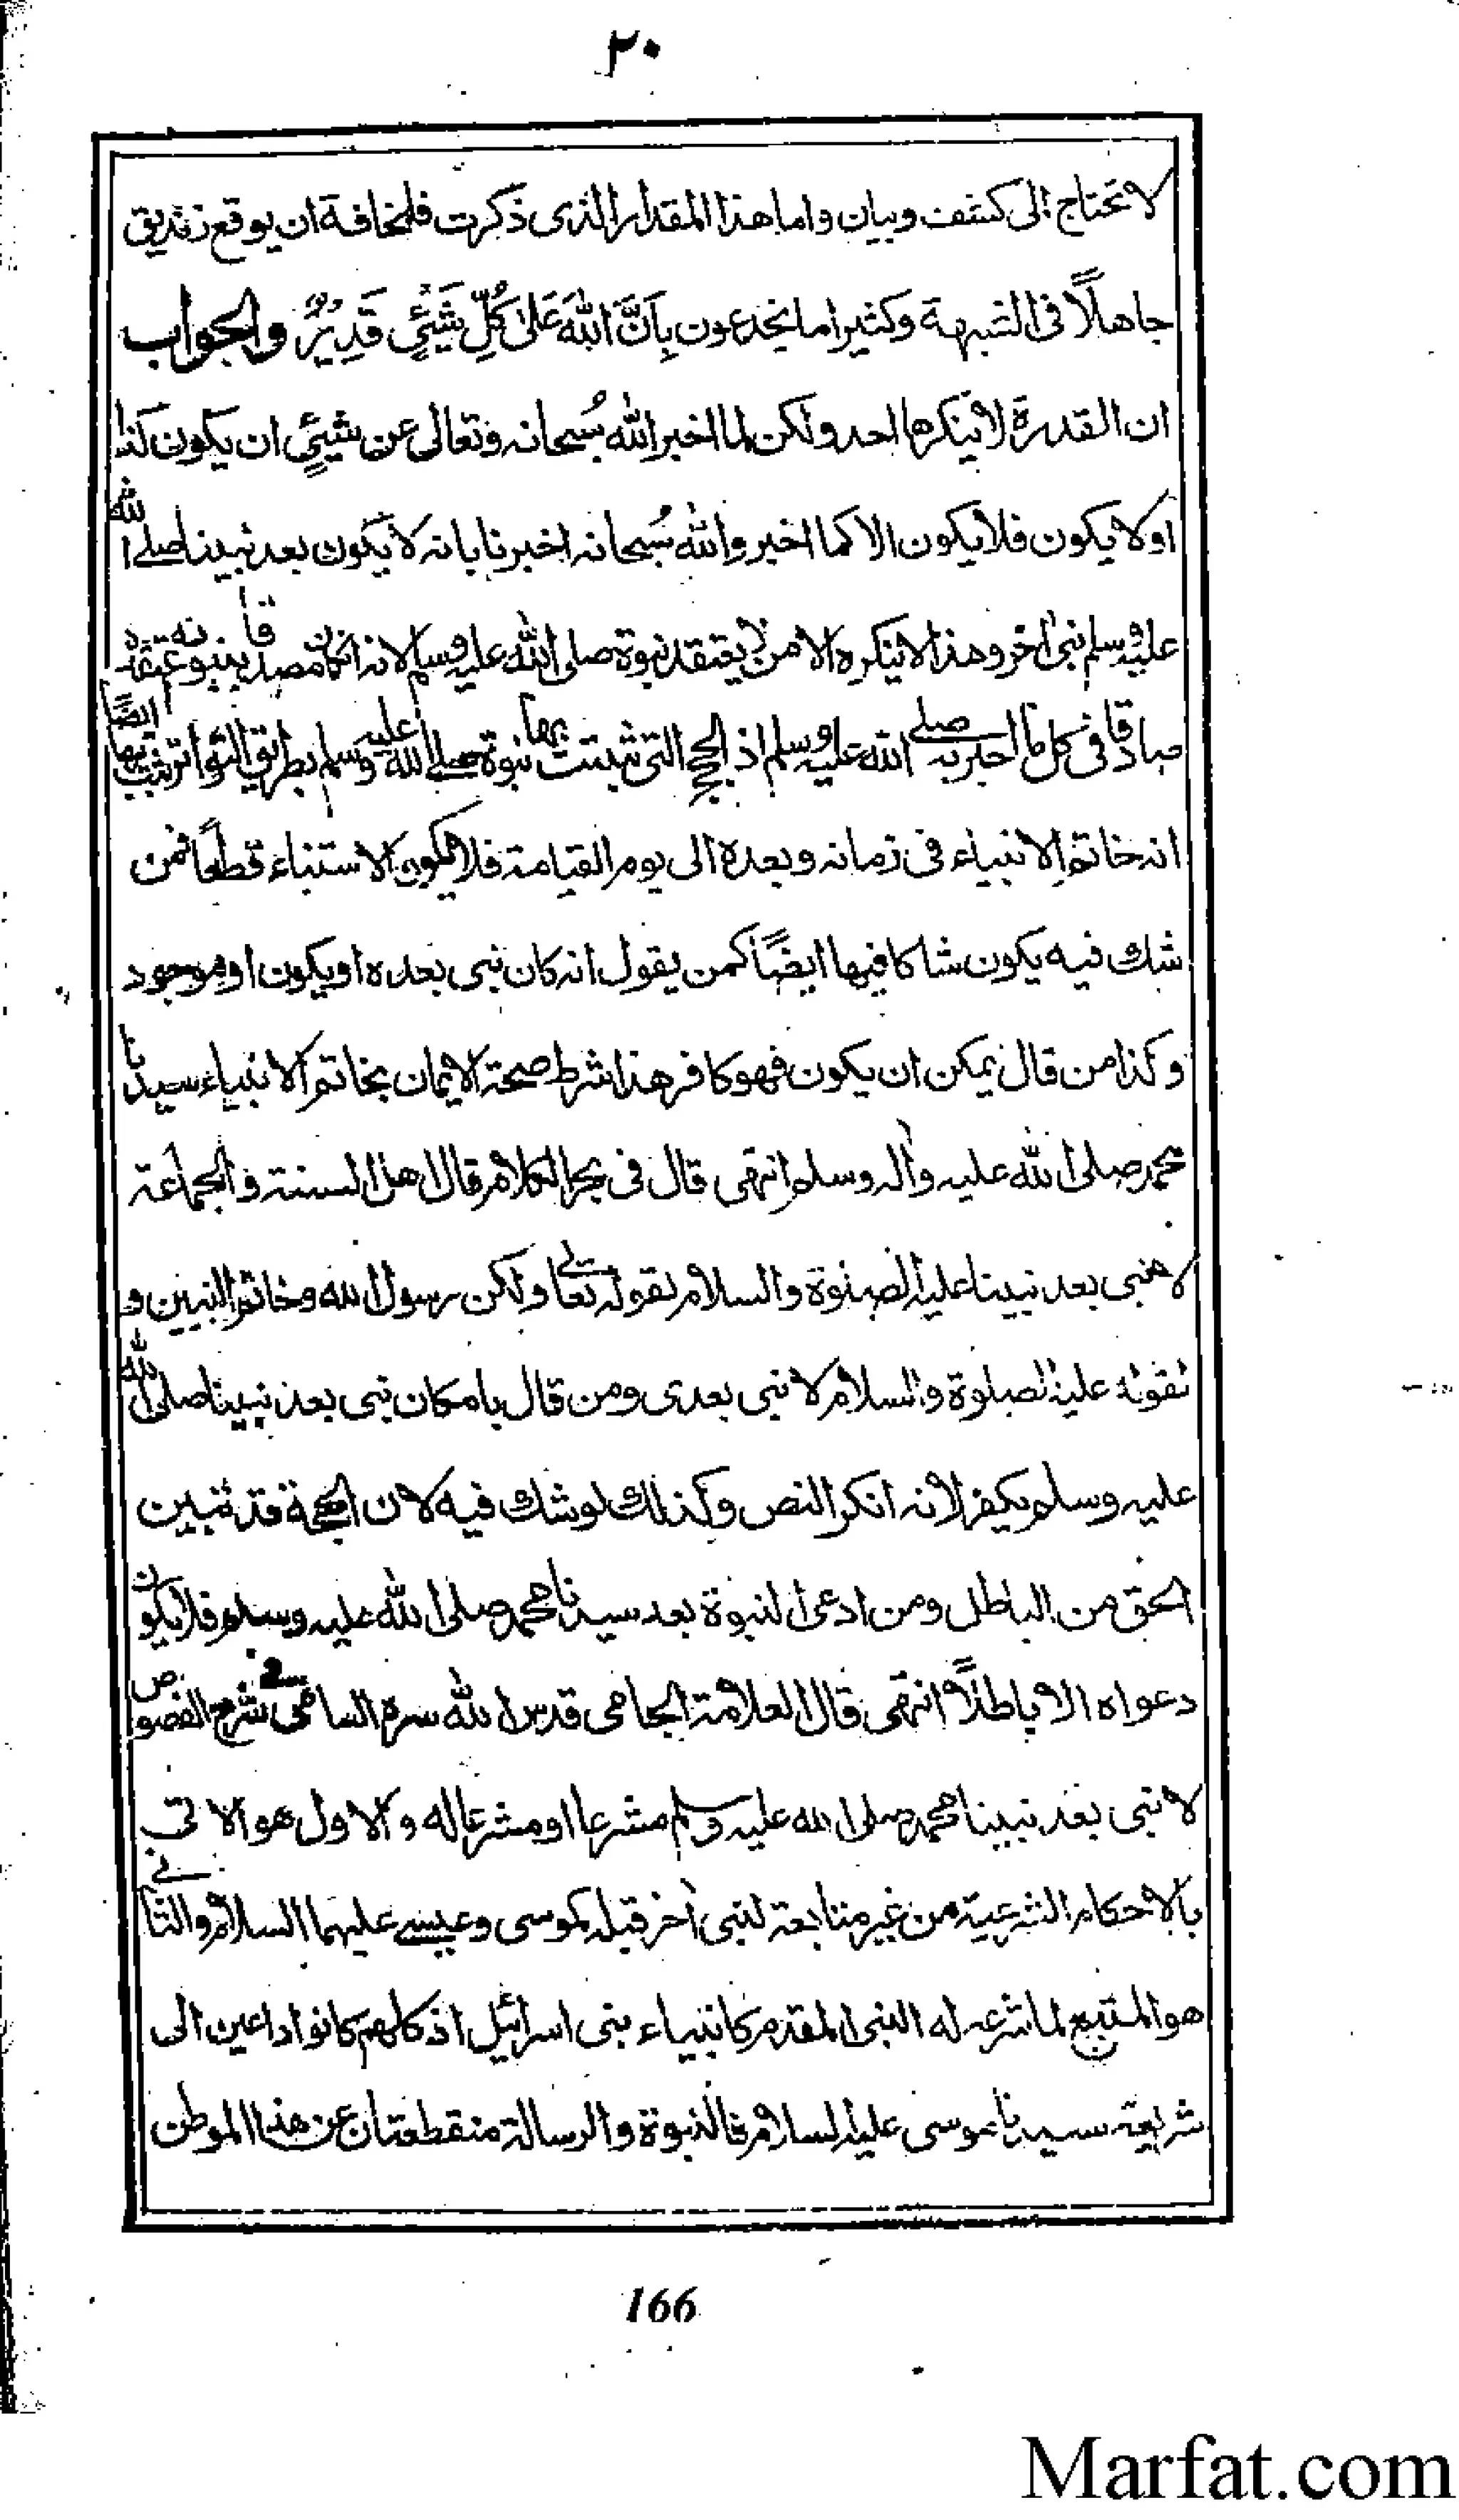 ٢٠
لا تحتاج الى كشف وبيان واما هذا المقدار الذى ذكرت فلمخافة ان يوقع زنديق
جاهلاً فى الشبهة وكثيرا ما يخدعون بِاَنَّ اللهَ عَلىٰ كُلِّ شَيْئٍ قَدِيْرٌ والجواب
ان القدرة لا ينكرها احد ولكن لما اخبر الله سُبحانه وتعالى عن شيئٍ ان يكون كذا
او لا يكون فلا يكون الا كما اخبر والله سُبحانه اخبرنا بانه لا يكون بعد نبينا صلے الله
عليه وسلم نبى اٰخر وهذا لا ينكره الا من لا يعتقد نبوة صلى الله عليه وسلم لانه ان كان مصدقا بنبوته
صادقا فى كل ما اخبر به صلے الله عليه وسلم اذ الحجج التى ثبتت بها نبوة صلے الله عليه وسلم بطريق التواتر ثبت بها ايضًا
انه خاتم الانبياء فى زمانه وبعده الى يوم القيامة فلا يكون الاستنباء قطعًا فمن
شك فيه يكون شاكا فيها ايضًا كمن يقول انه كان نبى بعده او يكون او موجود
وكذا من قال يمكن ان يكون فهو كافر هذا شرط صحة الايمان بخاتم الانبياء سيدنا
محمد صلى الله عليه واٰله وسلم انتهى قال فى بحر الكلام قال اهل السنة والجماعة
لا نبى بعد نبينا عليه الصلوة والسلام لقوله تعالے ولكن رسول الله وخاتم النبين و
لقوله عليه الصلوة والسلام لا نبى بعدى ومن قال بامكان نبى بعد نبينا صلى الله
عليه وسلم يكفر لانه انكر النص وكذلك لو شك فيه لان الحجة قد تبين
الحق من الباطل ومن ادعى النبوة بعد سيدنا محمد صلى الله عليه وسلم فلا يكون
دعواه الا باطلاً انتهى قال العلامة الجامى قدس الله سره السامى فے شرح الفصوص
لا نبى بعد نبينا محمد صلى الله عليه وسلم مشرعا او مشرعا له والاول هو الاتى
بالاحكام الشرعية من غير متابعة لنبى اٰخر قبله كموسى وعيسے عليهما السلام والثانے
هو المتبع لما شرعه له النبى المقدم كانبياء بنى اسرائيل اذ كلهم كانوا داعين الى
شريعة سيدنا موسى عليه السلام فالنبوة والرسالة منقطعتان عن هذا الموطن
166
Marfat.com